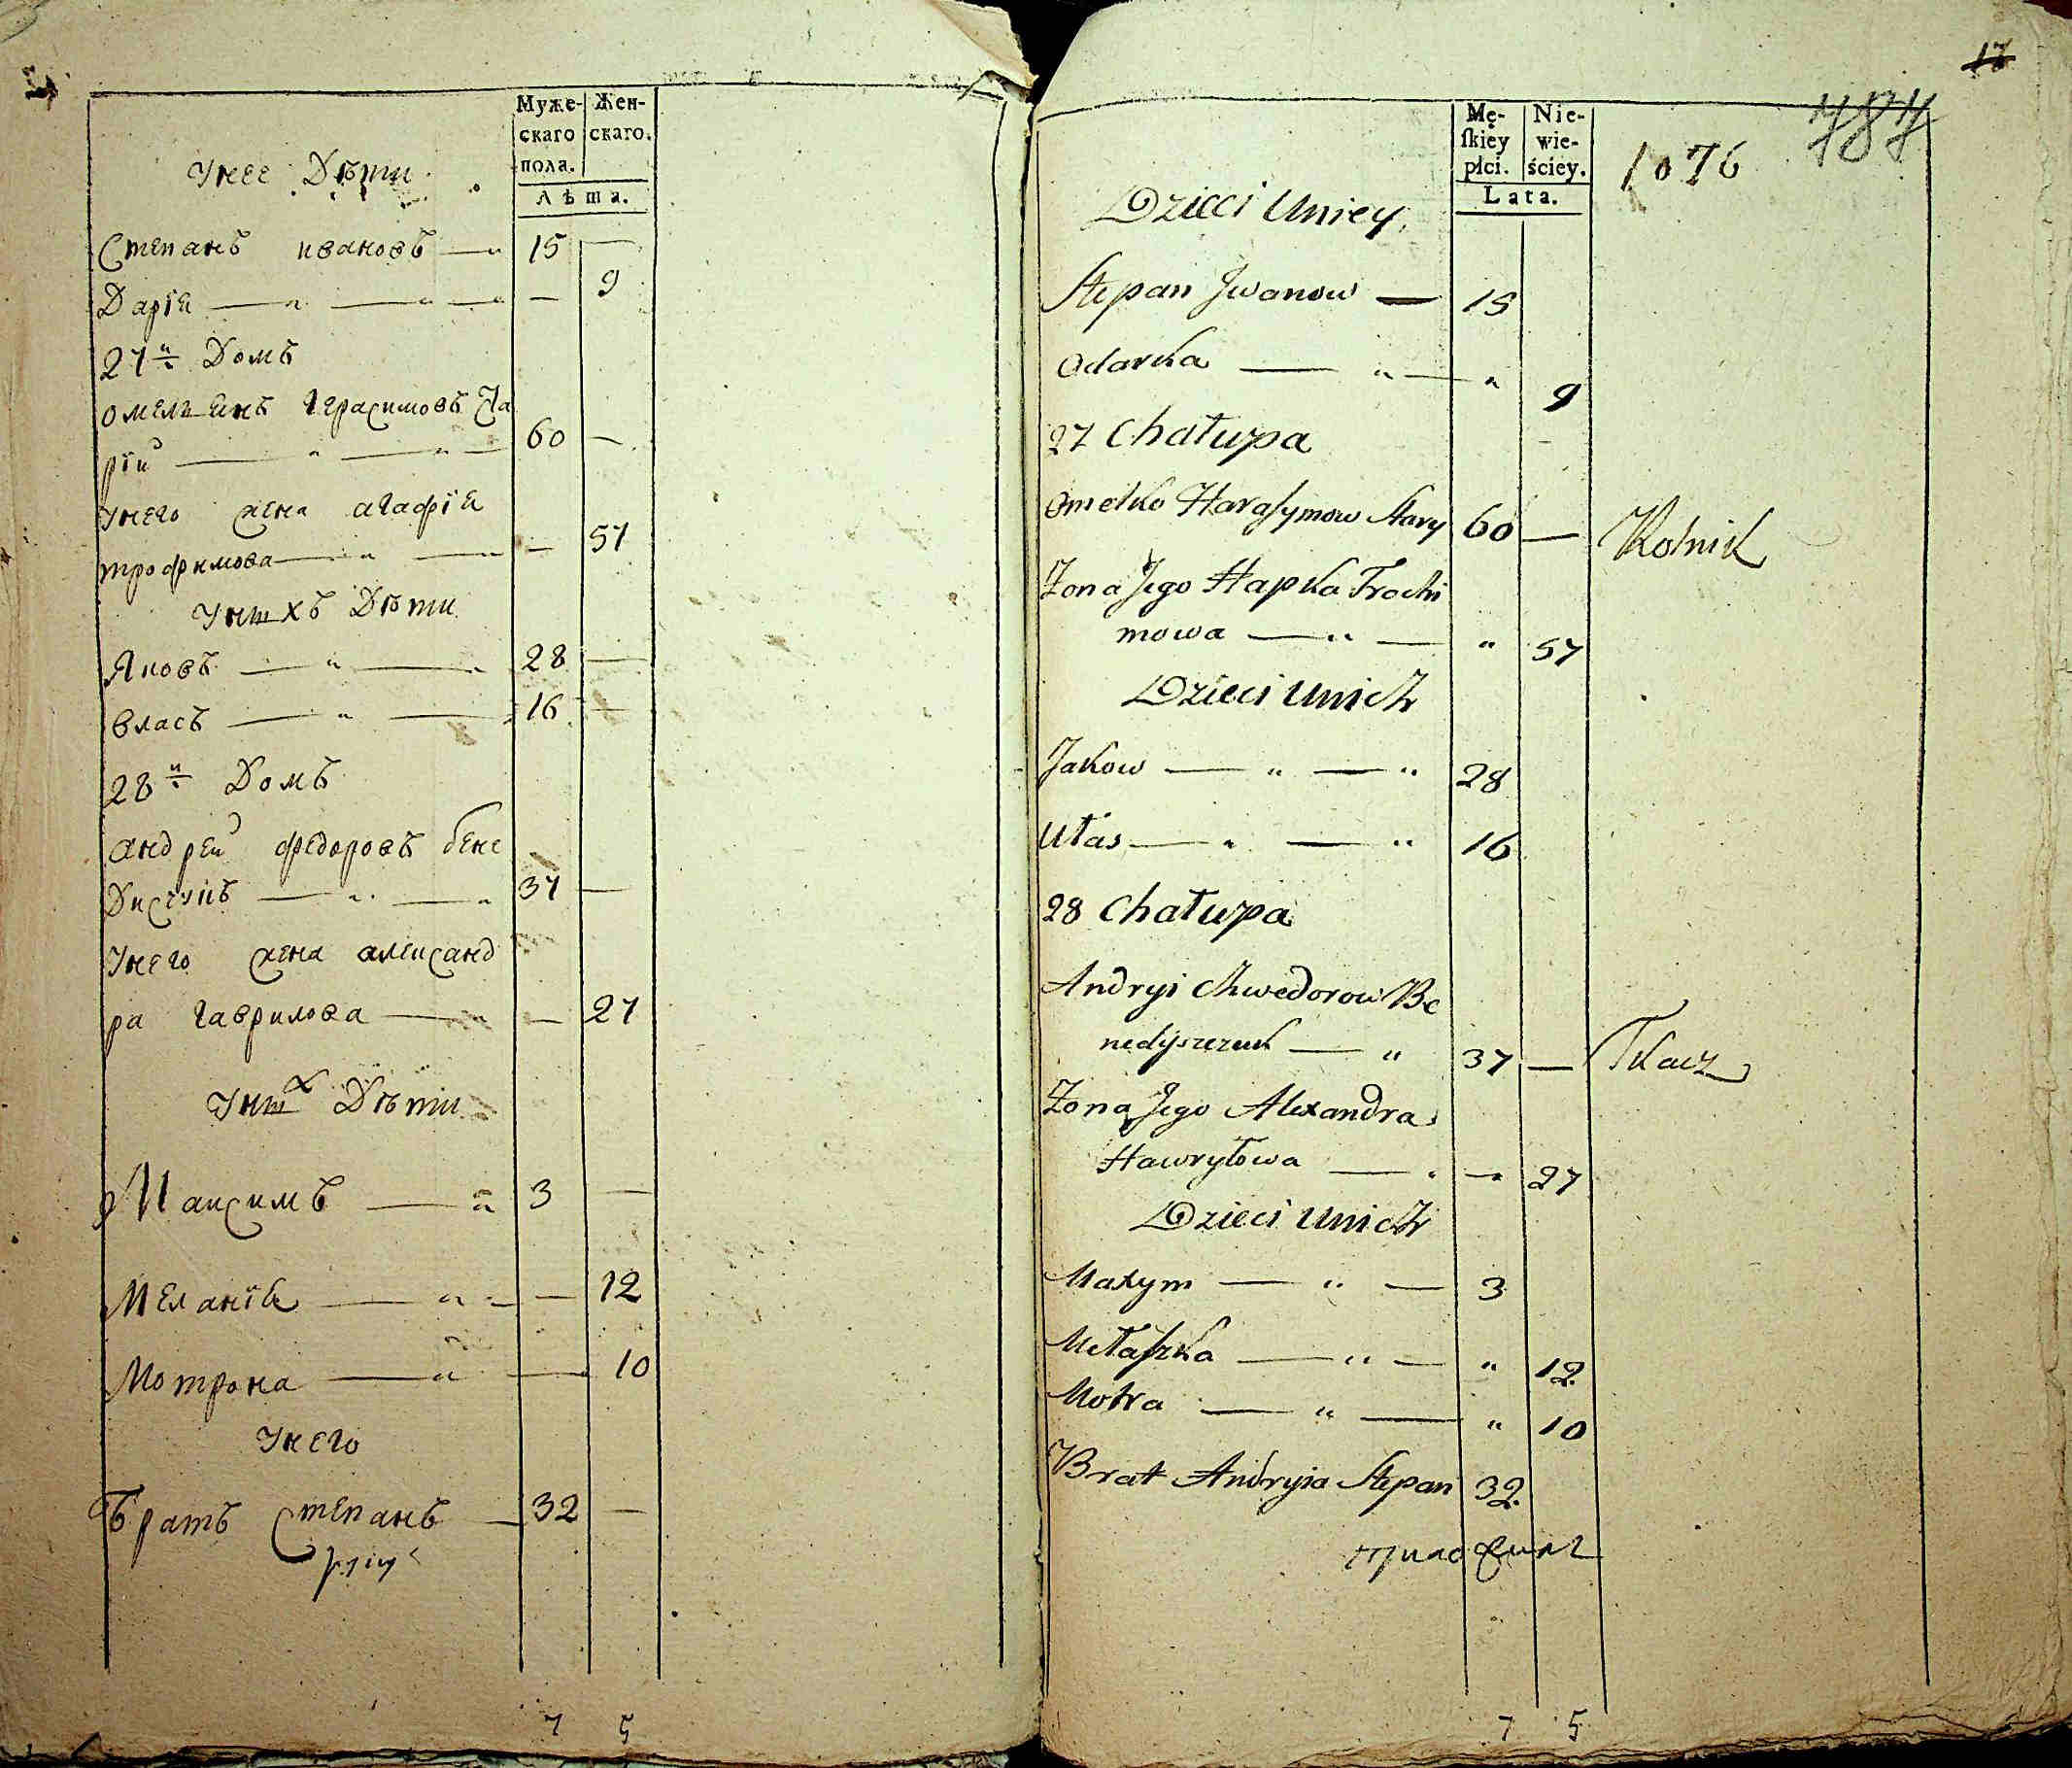 Муже-
скаго
пола.
Жен-
скаго.
Лѣта.
Унее Дѣти
Степанъ ивановъ — 15 —
Дарія — „ — „ — „ — 9
27й Домъ
омельянъ Герасимовъ Ста
рій — „ — „ — 60 —
Унего жена агафія
трофимова — „ — — 57
Унихъ Дѣти
Яковъ — „ — „ 28 —
власъ — „ — „ 16 —
28й Домъ
андрей федоровъ бене
Дисчукъ — „ — „ 37 —
Унего жена александ
ра Гаврилова — „ — 27
Унихъ Дѣти
Максимъ — „ 3 —
Меланія — „ „ — 12
Мотрона — „ — 10
Унего
Братъ Степанъ — 32 —
7 5
17
787
1076
Mę-
ſkiey
płci.
Nie-
wie-
ściey.
Lata.
Dzieci Uniey
Stepan Jwanow — 15
Odarka — „ — „ 9
27 Chałupa
Omelko Haraſymow Stary 60 — Rolnik
Zona Jego Hapka Trochi
mowa — „ — „ 57
Dzieci Unich
Jakow — „ — „ 28
Ułas — „ — „ 16
28 Chałupa
Andryi Chwedorow Be
nedyszczuk — „ 37 — Tkacz
Zona Jego Alexandra
Hawryłowa — „ — „ 27
Dzieci Unich
Maxym — „ — 3
Mełaſzka — „ — „ 12
Motra — „ — „ 10
Brat Andryia Stepan 32
7 5